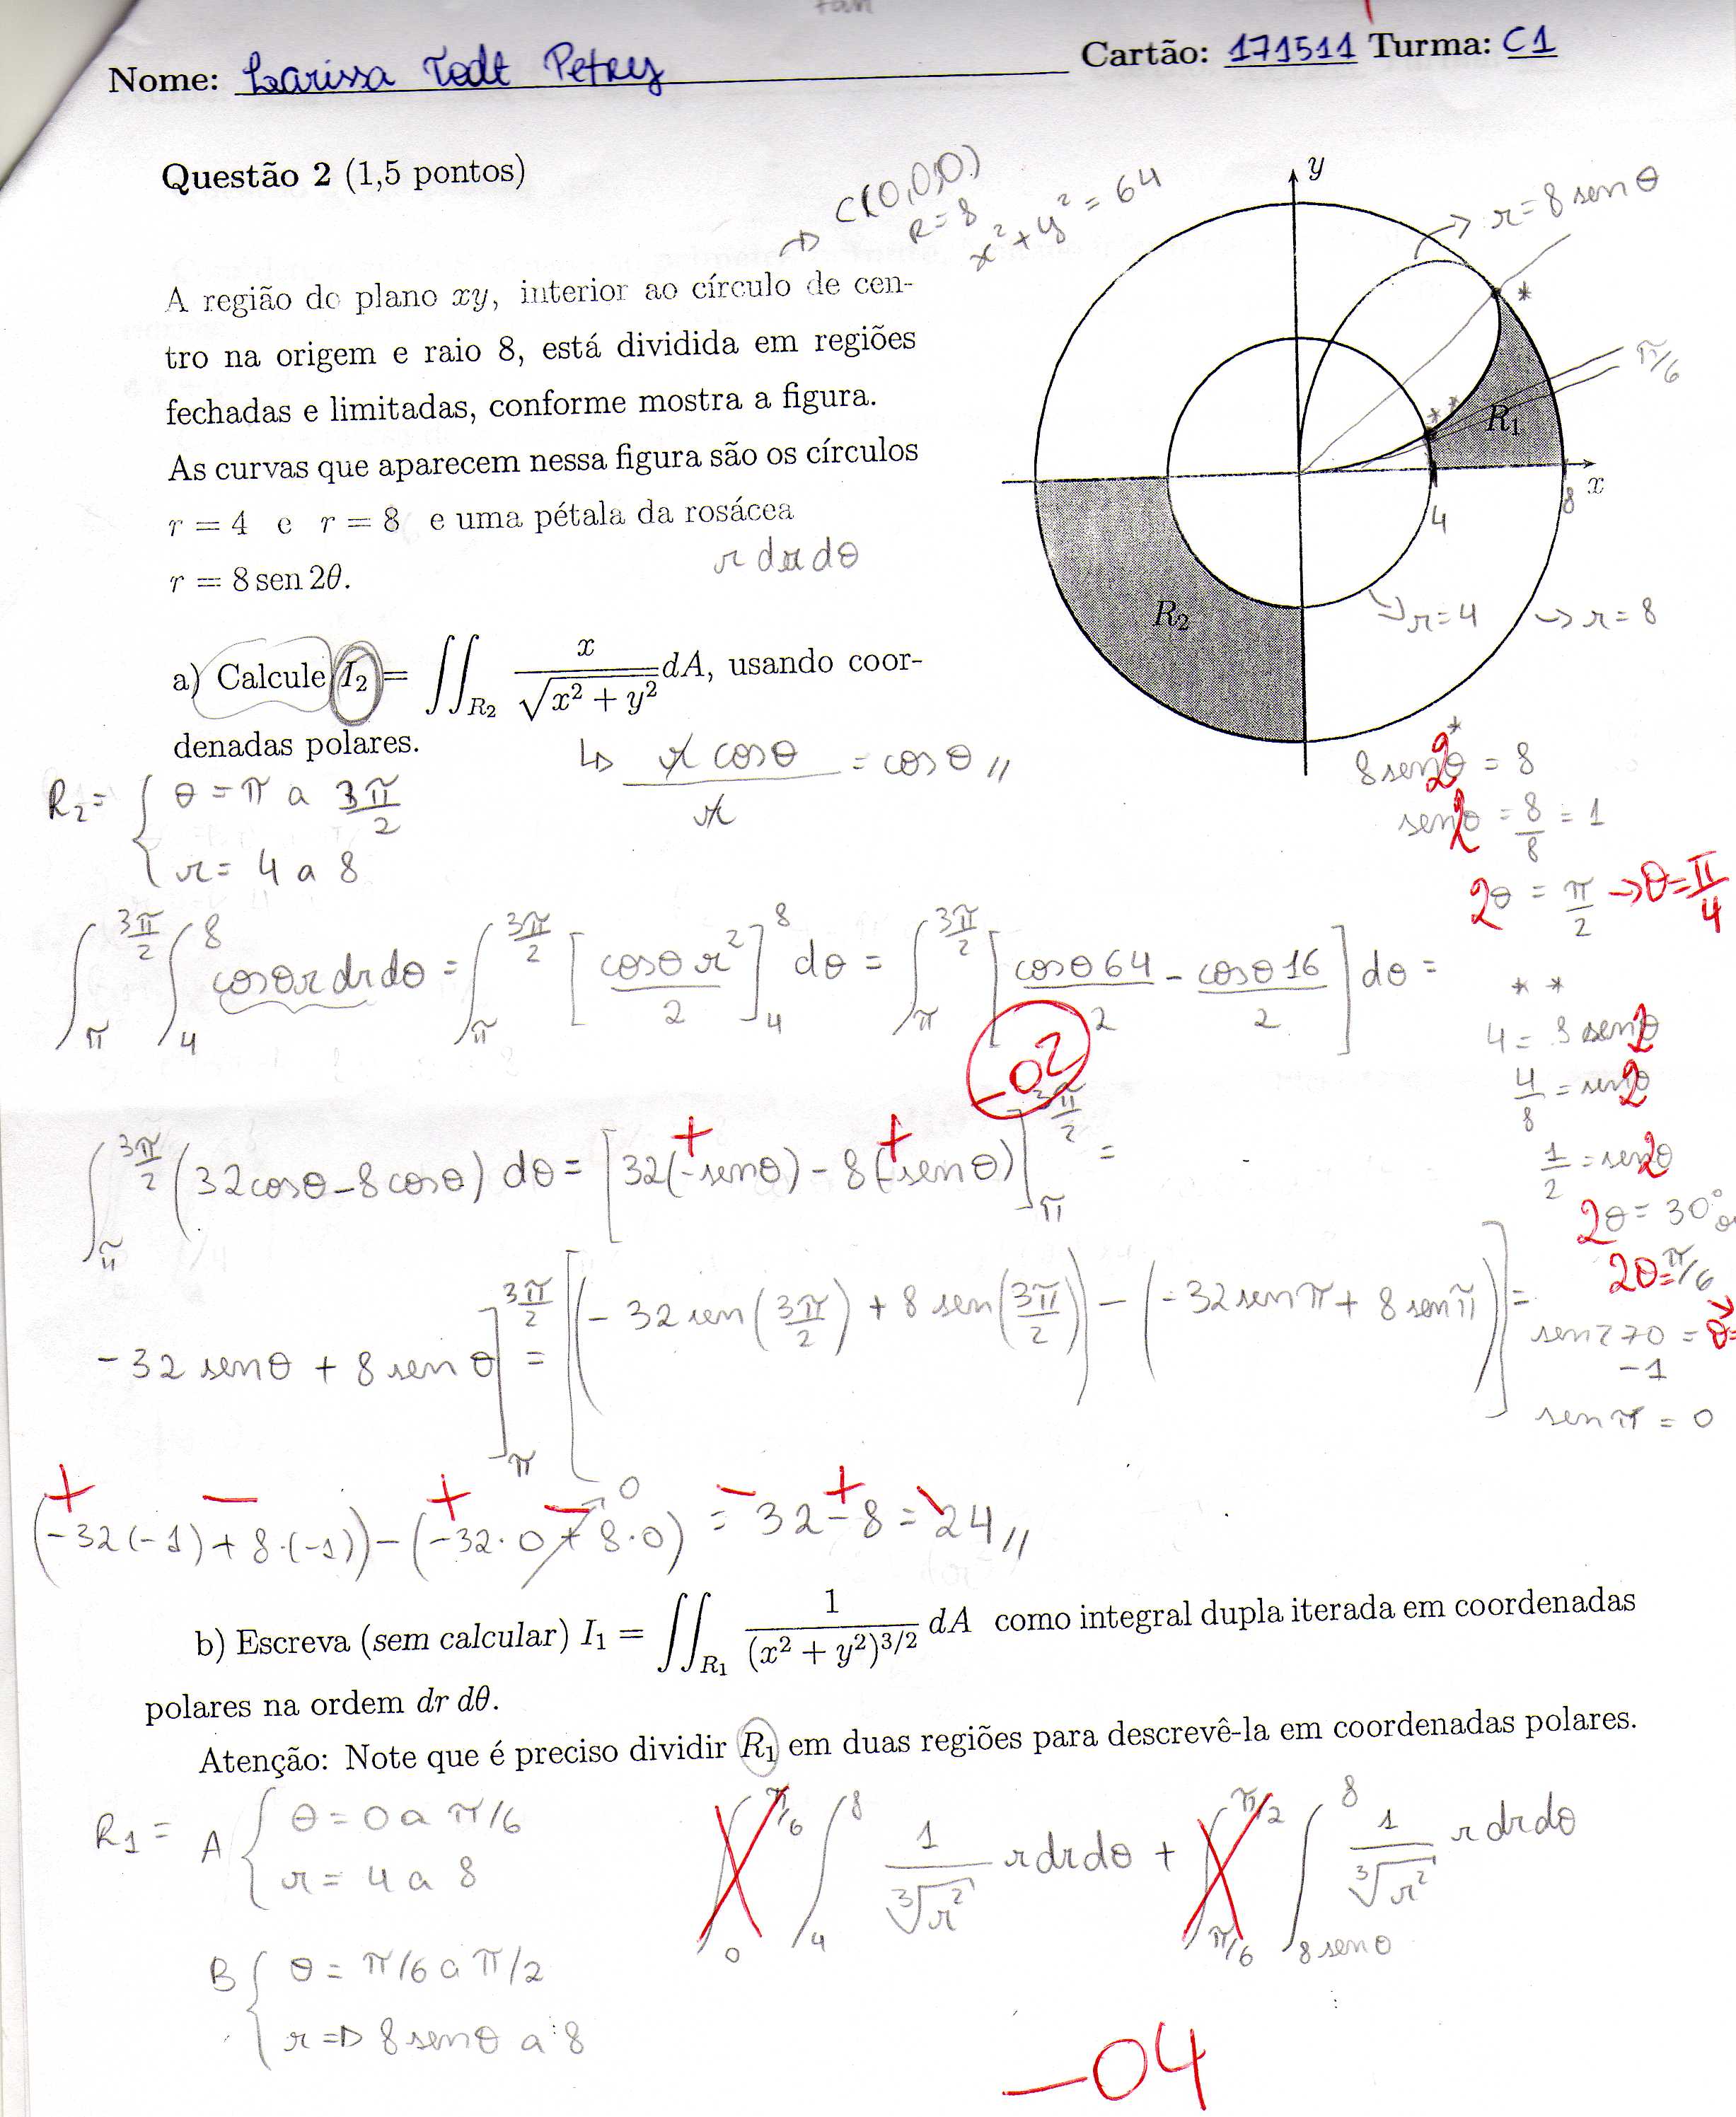 Nome: Larissa Todt Petry Cartão: 171511 Turma: C1
Questão 2 (1,5 pontos)
→ C(0,0,0)
R=8
x² + y² = 64
y
→ r = 8 sen θ
*
A região do plano xy, interior ao círculo de cen-
tro na origem e raio 8, está dividida em regiões
fechadas e limitadas, conforme mostra a figura.
As curvas que aparecem nessa figura são os círculos
r = 4 e r = 8 e uma pétala da rosácea
r = 8 sen 2θ.
r dr dθ
π/6
* *
R₁
x
4
8
R₂
→ r=4
→ r=8
a) Calcule I₂ = ∬_R₂ x/√(x² + y²) dA, usando coor-
denadas polares.
↳ r cosθ / r = cosθ //
R₂ = { θ = π a 3π/2
r = 4 a 8
*
8 sen 2θ = 8
sen 2θ = 8/8 = 1
2θ = π/2 → θ = π/4
∫_π^{3π/2} ∫_4^8 cosθ r dr dθ = ∫_π^{3π/2} [cosθ r²/2]_4^8 dθ = ∫_π^{3π/2} [cosθ 64/2 - cosθ 16/2] dθ =
-02
* *
4 = 8 sen 2θ
4/8 = sen 2θ
1/2 = sen 2θ
2θ = 30°
2θ = π/6
∫_π^{3π/2} (32cosθ - 8cosθ) dθ = [32(-senθ) - 8(-senθ)]_π^{3π/2} =
+ +
-32 senθ + 8 senθ]_π^{3π/2} = [(-32 sen(3π/2) + 8 sen(3π/2)) - (-32 senπ + 8 senπ)] =
sen 270 = -1
sen π = 0
+ - + - 0 - +
(-32(-1) + 8·(-1)) - (-32·0 + 8·0) = 32 - 8 = 24 //
b) Escreva (sem calcular) I₁ = ∬_R₁ 1/(x² + y²)^{3/2} dA como integral dupla iterada em coordenadas
polares na ordem dr dθ.
Atenção: Note que é preciso dividir R₁ em duas regiões para descrevê-la em coordenadas polares.
R₁ = A { θ = 0 a π/6
r = 4 a 8
∫_0^{π/6} ∫_4^8 1/∛r² r dr dθ + ∫_{π/6}^{π/2} ∫_{8 senθ}^8 1/∛r² r dr dθ
B { θ = π/6 a π/2
r => 8 senθ a 8
-04